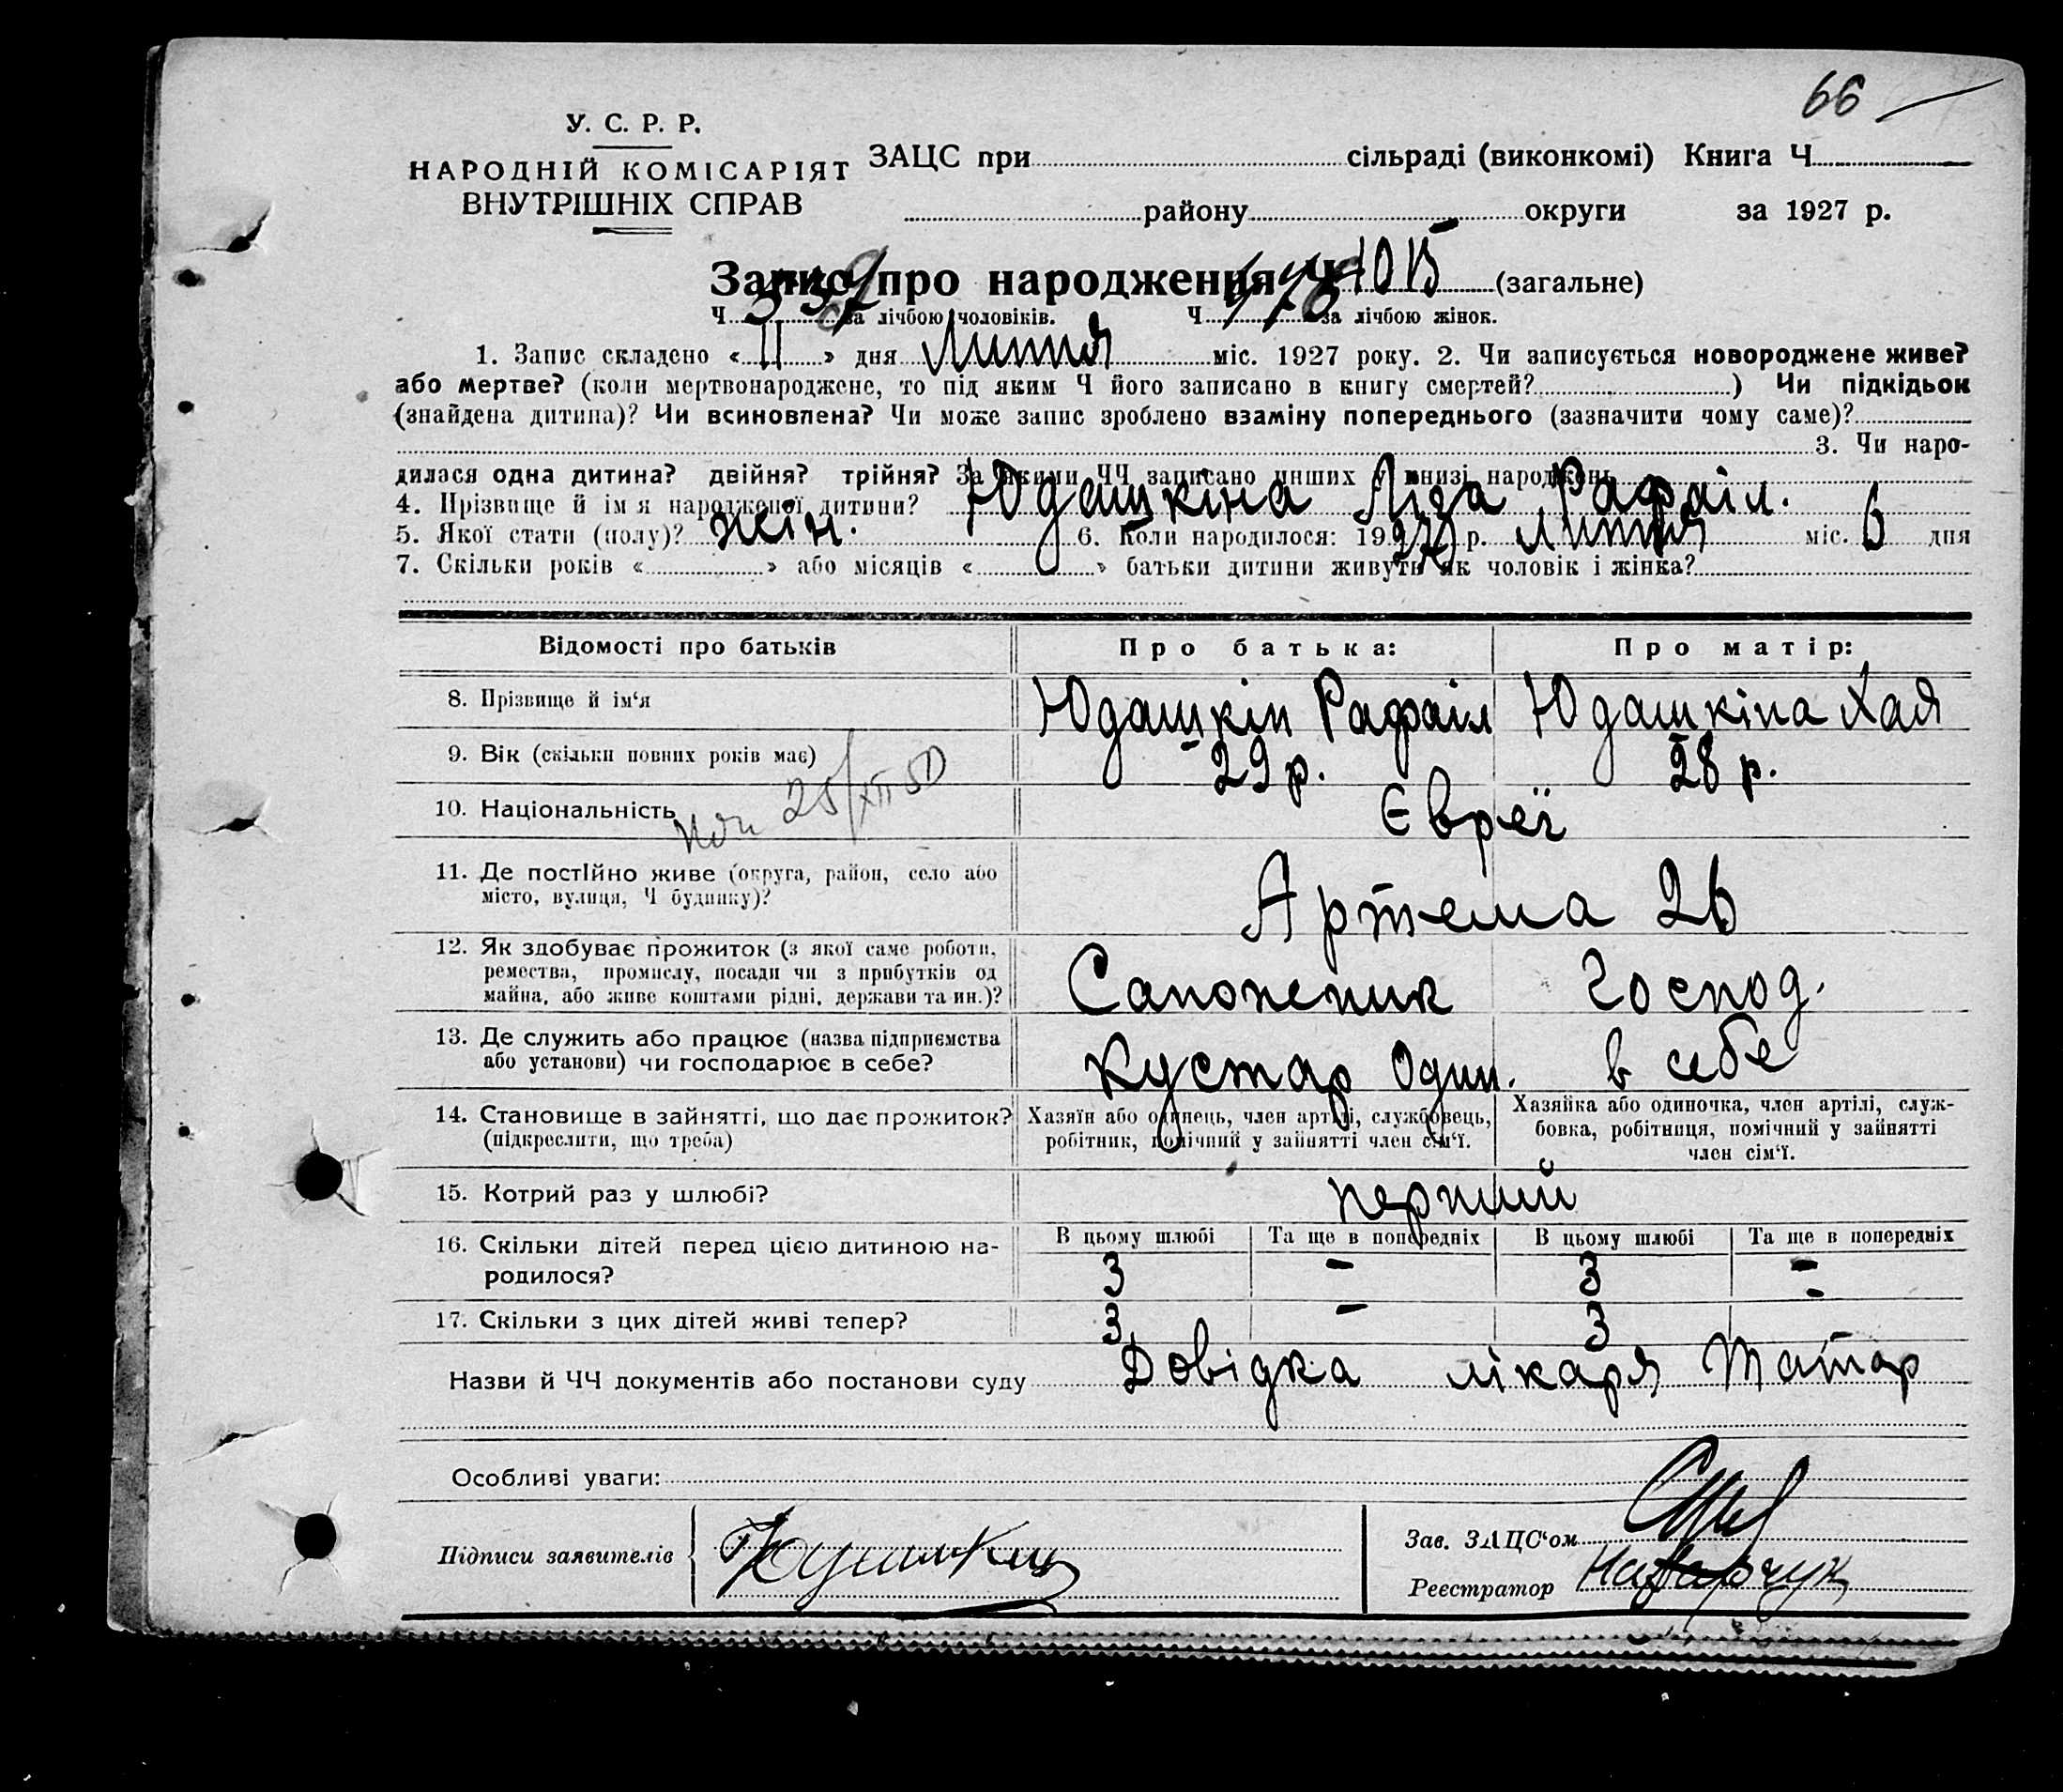 66
У. С. Р. Р.
НАРОДНІЙ КОМІСАРІЯТ
ВНУТРІШНІХ СПРАВ
ЗАЦС при сільраді (виконкомі) Книга Ч
району округи за 1927 р.
Запис про народження Ч 1015 (загальне)
Ч за лічбою чоловіків. Ч 478 за лічбою жінок.
1. Запис складено « 11 » дня Лютня міс. 1927 року. 2. Чи записується новороджене живе?
або мертве? (коли мертвонароджене, то під яким Ч його записано в книгу смертей? ) Чи підкідьок
(знайдена дитина)? Чи всиновлена? Чи може запис зроблено взаміну попереднього (зазначити чому саме)?
3. Чи наро-
дилася одна дитина? двійня? трійня? За якими ЧЧ записано инших у книзі народжень
4. Прізвище й ім'я народженої дитини? Юдашкіна Ліза Рафаіл.
5. Якої стати (полу)? жін. 6. Коли народилося: 1927 р. лютня міс. 6 дня
7. Скільки років « » або місяців « » батьки дитини живуть як чоловік і жінка?
Відомості про батьків Про батька: Про матір:
8. Прізвище й ім'я Юдашкін Рафаіл Юдашкіна Хая
9. Вік (скільки повних років має) 29 р. 28 р.
10. Національність 25/XII 50 Євреї
11. Де постійно живе (округа, район, село або
місто, вулиця, Ч будинку)? Артема 26
12. Як здобуває прожиток (з якої саме роботи,
ремества, промислу, посади чи з прибутків од
майна, або живе коштами рідні, держави та ин.)? Сапожник Господ.
13. Де служить або працює (назва підприємства
або установи) чи господарює в себе? Кустар Один. в себе
14. Становище в зайнятті, що дає прожиток?
(підкреслити, що треба)
Хазяїн або одинець, член артілі, службовець,
робітник, помічний у зайнятті член сім'ї.
Хазяйка або одиночка, член артілі, служ-
бовка, робітниця, помічний у зайнятті
член сім'ї.
15. Котрий раз у шлюбі? перший
16. Скільки дітей перед цією дитиною на-
родилося?
В цьому шлюбі Та ще в попередніх В цьому шлюбі Та ще в попередніх
3 - 3 -
17. Скільки з цих дітей живі тепер? 3 - 3 -
Назви й ЧЧ документів або постанови суду Довідка лікаря Татар
Особливі уваги:
Підписи заявителів Юдашкин
Зав. ЗАЦС'ом
Реєстратор